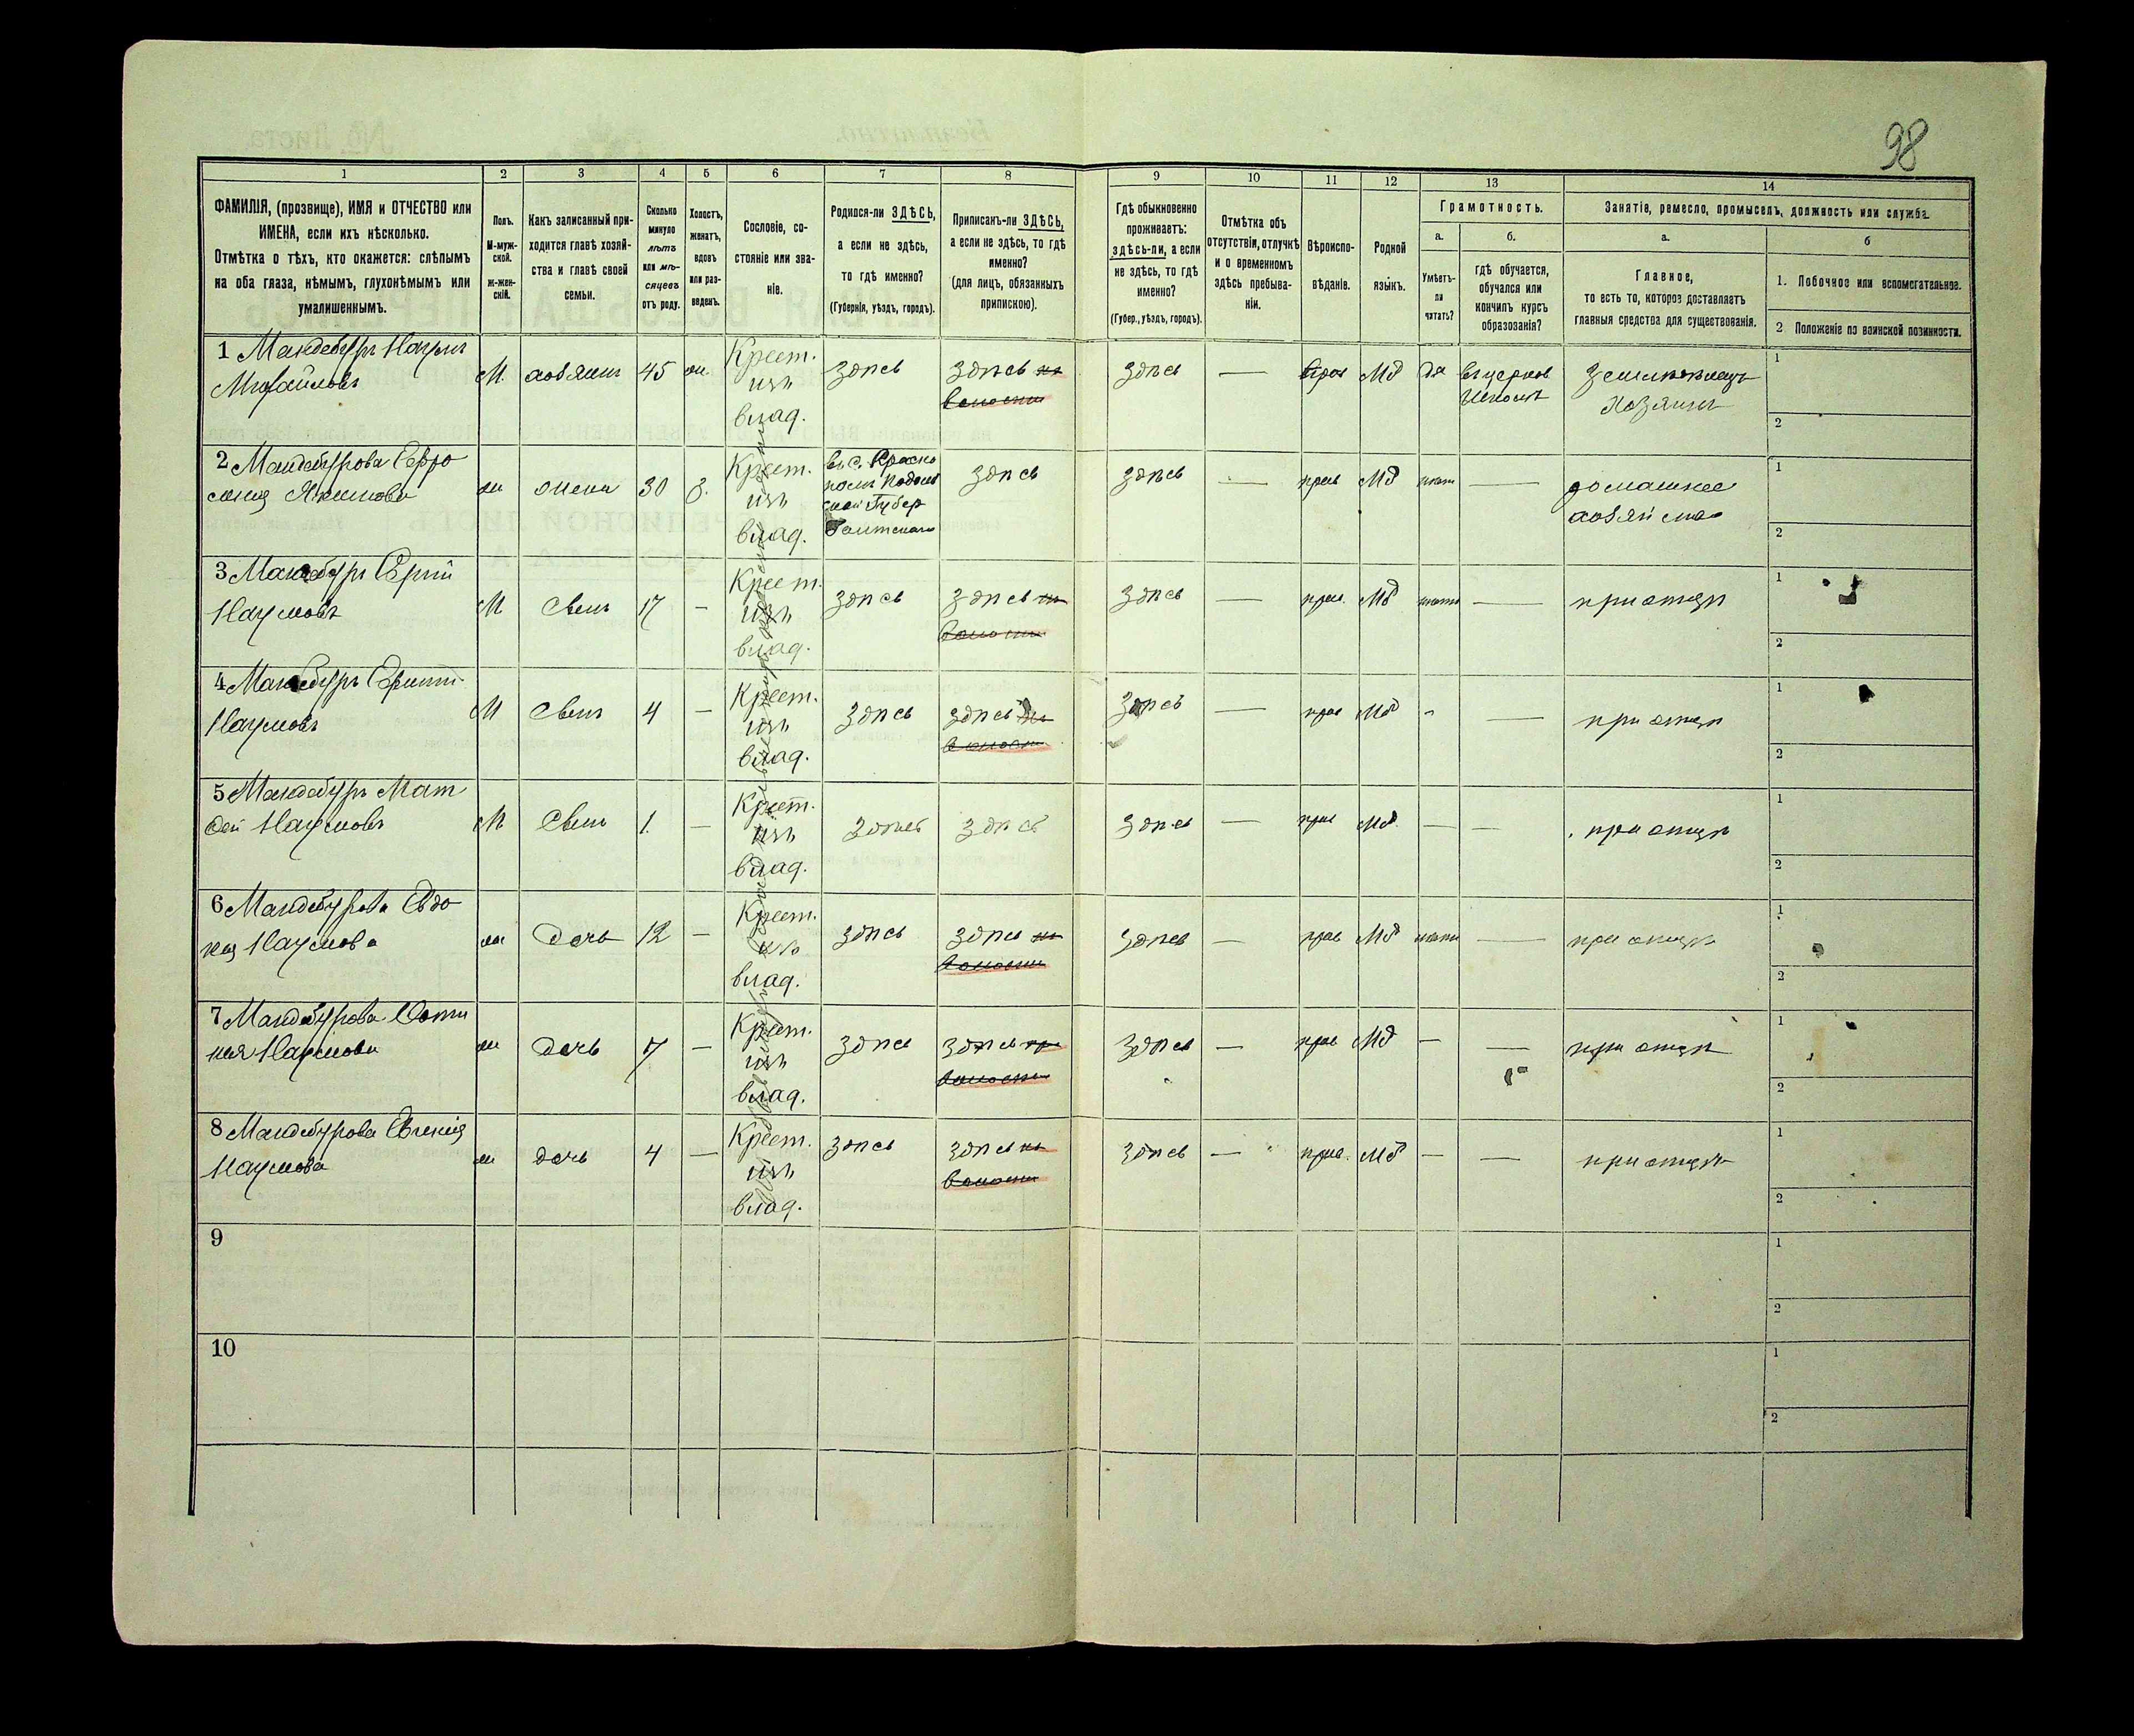 98
1
2
3
4
5
6
7
8
9
10
11
12
13
14
ФАМИЛІЯ, (прозвище), ИМЯ и ОТЧЕСТВО или
ИМЕНА, если ихъ нѣсколько.
Отмѣтка о тѣхъ, кто окажется: слѣпымъ
на оба глаза, нѣмымъ, глухонѣмымъ или
умалишеннымъ.
Полъ.
М-муж-
ской.
ж-жен-
скій.
Какъ записанный при-
ходится главѣ хозяй-
ства и главѣ своей
семьи.
Сколько
минуло
лѣтъ
или мѣ-
сяцевъ
отъ роду.
Холостъ,
женатъ,
вдовъ
или раз-
веденъ.
Сословіе, со-
стояніе или зва-
ніе.
Родился-ли ЗДѢСЬ,
а если не здѣсь,
то гдѣ именно?
(Губернія, уѣздъ, городъ).
Приписанъ-ли ЗДѢСЬ,
а если не здѣсь, то гдѣ
именно?
(для лицъ, обязанныхъ
припискою).
Гдѣ обыкновенно
проживаетъ:
здѣсь-ли, а если
не здѣсь, то гдѣ
именно?
(Губер., уѣздъ, городъ).
Отмѣтка объ
отсутствіи, отлучкѣ
и о временномъ
здѣсь пребыва-
ніи.
Вѣроиспо-
вѣданіе.
Родной
языкъ.
Грамотность.
а.
Умѣетъ-
ли
читать?
б.
гдѣ обучается,
обучался или
кончилъ курсъ
образозанія?
Занятіе, ремесло, промыселъ, должность или служба.
а.
Главное,
то есть то, которое доставляетъ
главныя средства для существованія.
б
1. Побочное или вспомогательное.
2 Положеніе по воинской повинности.
1 Мандебуръ Наумъ
Михайловъ
М.
хозяинъ
45
ж.
Крест.
изъ
влад.
здѣсь
здѣсь
волости
здѣсь
—
прав
Мд
да
въ церков
школѣ
земледѣлецъ
хозяинъ
1
2
2 Мандебурова Евфро
синия Якимова
ж
жена
30
з.
Крест.
изъ
влад.
въ с.
Подоль
ской Губер
Балтскаго
здѣсь
здѣсь
—
прав
Мд
нѣтъ
—
домашнее
хозяйство
1
2
3 Мандебуръ Сергій
Наумовъ
М
Сынъ
17
—
Крест.
изъ
влад.
здѣсь
здѣсь
волости
здѣсь
—
прав.
Мд
нѣтъ
—
при отцѣ
1
2
4 Мандебуръ
Наумовъ
М
Сынъ
4
—
Крест.
изъ
влад.
здѣсь
здѣсь
волости
здѣсь
—
прав
Мд
-
—
при отцѣ
1
2
5 Мандебуръ Мат
фей Наумовъ
М
Сынъ
1.
—
Крест.
изъ
влад.
здѣсь
здѣсь
здѣсь
—
прав
Мд.
—
—
при отцѣ
1
2
6 Мандебурова Евдо
кия Наумова
ж
Дочь
12
—
Крест.
изъ
влад.
здѣсь
здѣсь
волости
здѣсь
—
прав
Мд
нѣтъ
—
при отцѣ
1
2
7 Мандебурова Фоти
ния Наумова
ж
дочь
7
—
Крест.
изъ
влад.
здѣсь
здѣсь
волости
здѣсь
—
прав
Мд
—
—
при отцѣ
1
2
8 Мандебурова Евгения
Наумова
ж
дочь
4
—
Крест.
изъ
влад.
здѣсь
здѣсь
волости
здѣсь
—
прав.
Мд
—
—
при отцѣ
1
2
9
1
2
10
1
2